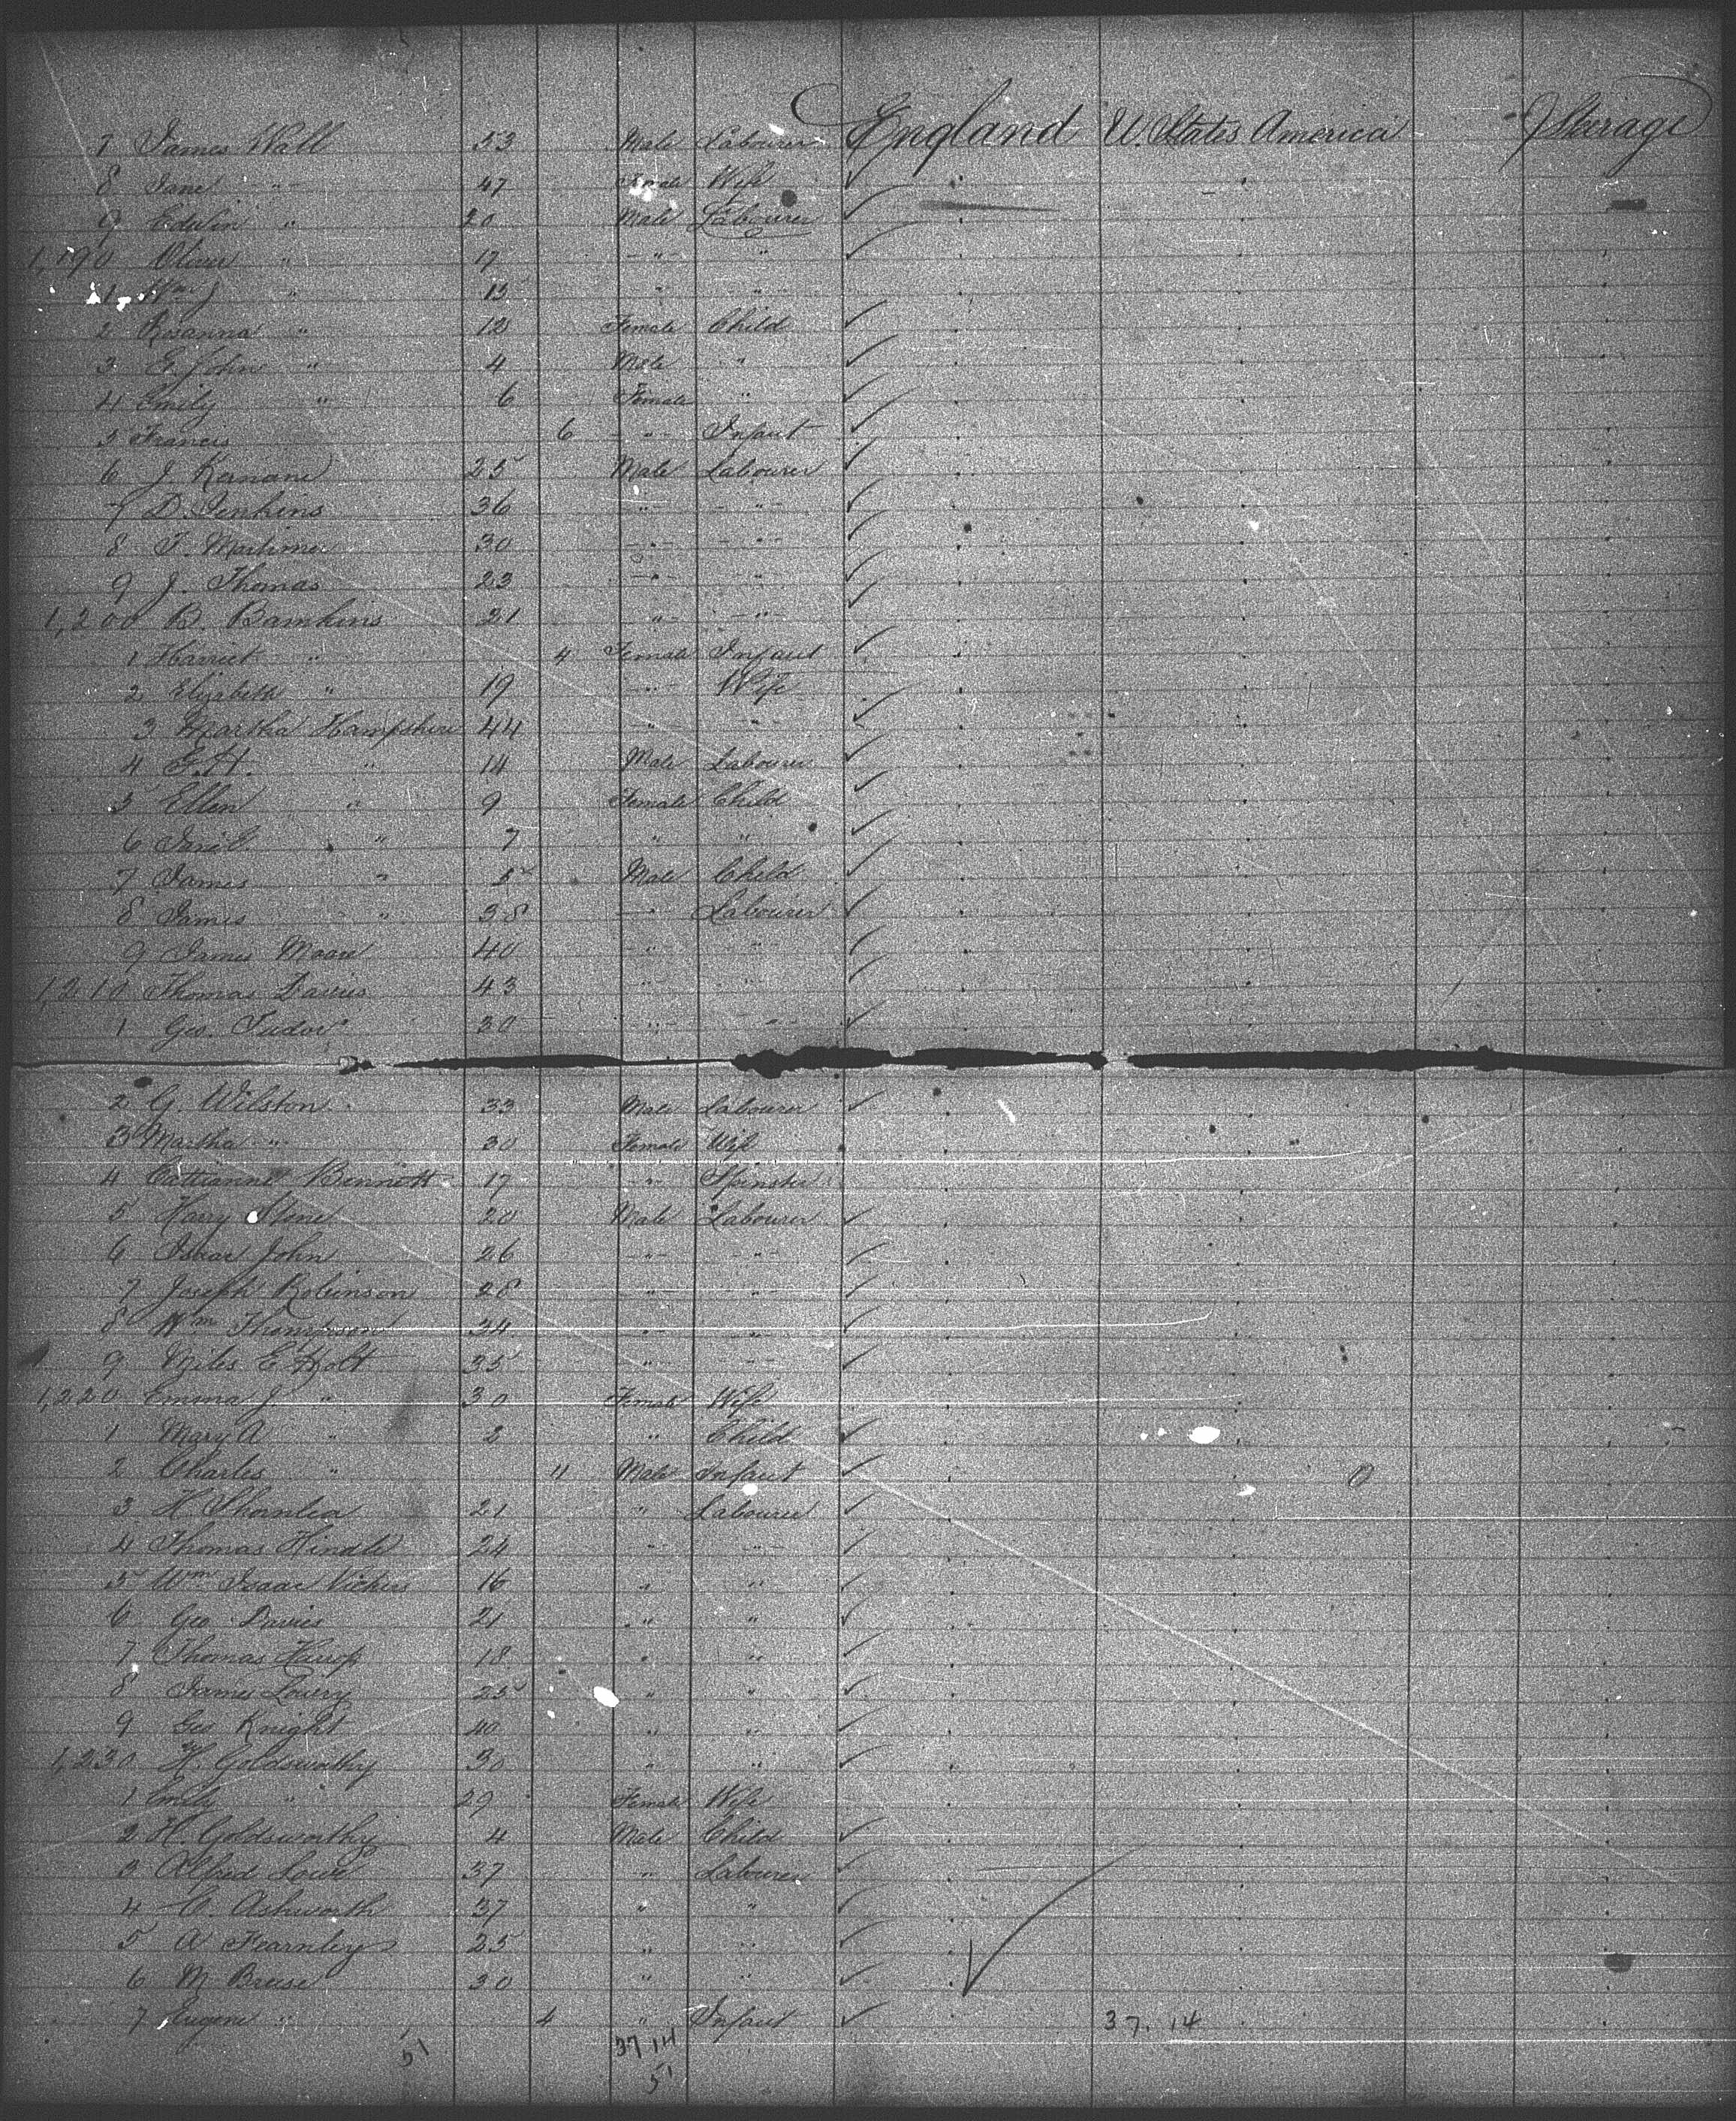 7 James Wall 53 Male Labourer England U. States America Steerage
8 Jane " 47 Female Wife
9 Edwin " 20 Male Labourer
1,190 Oliver " 17 " "
1 Wm J " 15 " "
2 Rosanna " 12 Female Child
3 E. John " 4 Male "
4 Emily " 6 Female "
5 Francis 6 " Infant
6 J. Kernane 25 Male Labourer
7 D. Jenkins 36 " "
8 T. Mortimer 30 " "
9 J. Thomas 23 " "
1,200 B. Bamkins 21 " "
1 Harriet " 4 Female Infant
2 Elizabeth " 19 " Wife
3 Martha Hampshire 44 " "
4 E.H. " 14 Male Labourer
5 Ellen " 9 Female Child
6 Jane E. " 7 " "
7 James " 5 Male Child
8 James " 38 " Labourer
9 James Moore 40 " "
1,210 Thomas Davies 43 " "
1 Geo. Tudor 30 " "
2 G. Wilston 33 Male Labourer
3 Martha " 30 Female Wife "
4 Bennett 17 " Spinster
5 Harry Stene 20 Male Labourer
6 Isaac John 26 " "
7 Joseph Robinson 28 " "
8 Wm Thompson 34 " "
9 Miles E Holt 35 " "
1,220 Emma J. " 30 Female Wife
1 Mary A " 2 " Child
2 Charles " 11 Male Infant
3 H. Thornlea 21 " Labourer
4 Thomas Hindle 24 " "
5 Wm Isaac Vickers 16 " "
6 Geo. Davies 21 " "
7 Thomas Harrop 18 " "
8 James Lowry 25 " "
9 Geo Knight 40 " "
1,230 H. Goldsworthy 30 " "
1 Emily " 29 Female Wife
2 H. Goldsworthy 4 Male Child
3 Alfred Lowe 37 " Labourer
4 Ashworth 37 " "
5 A Fearnley 25 " "
6 M Breese 30 " "
7 Eugene " 4 " Infant 37. 14
51 37 14
51